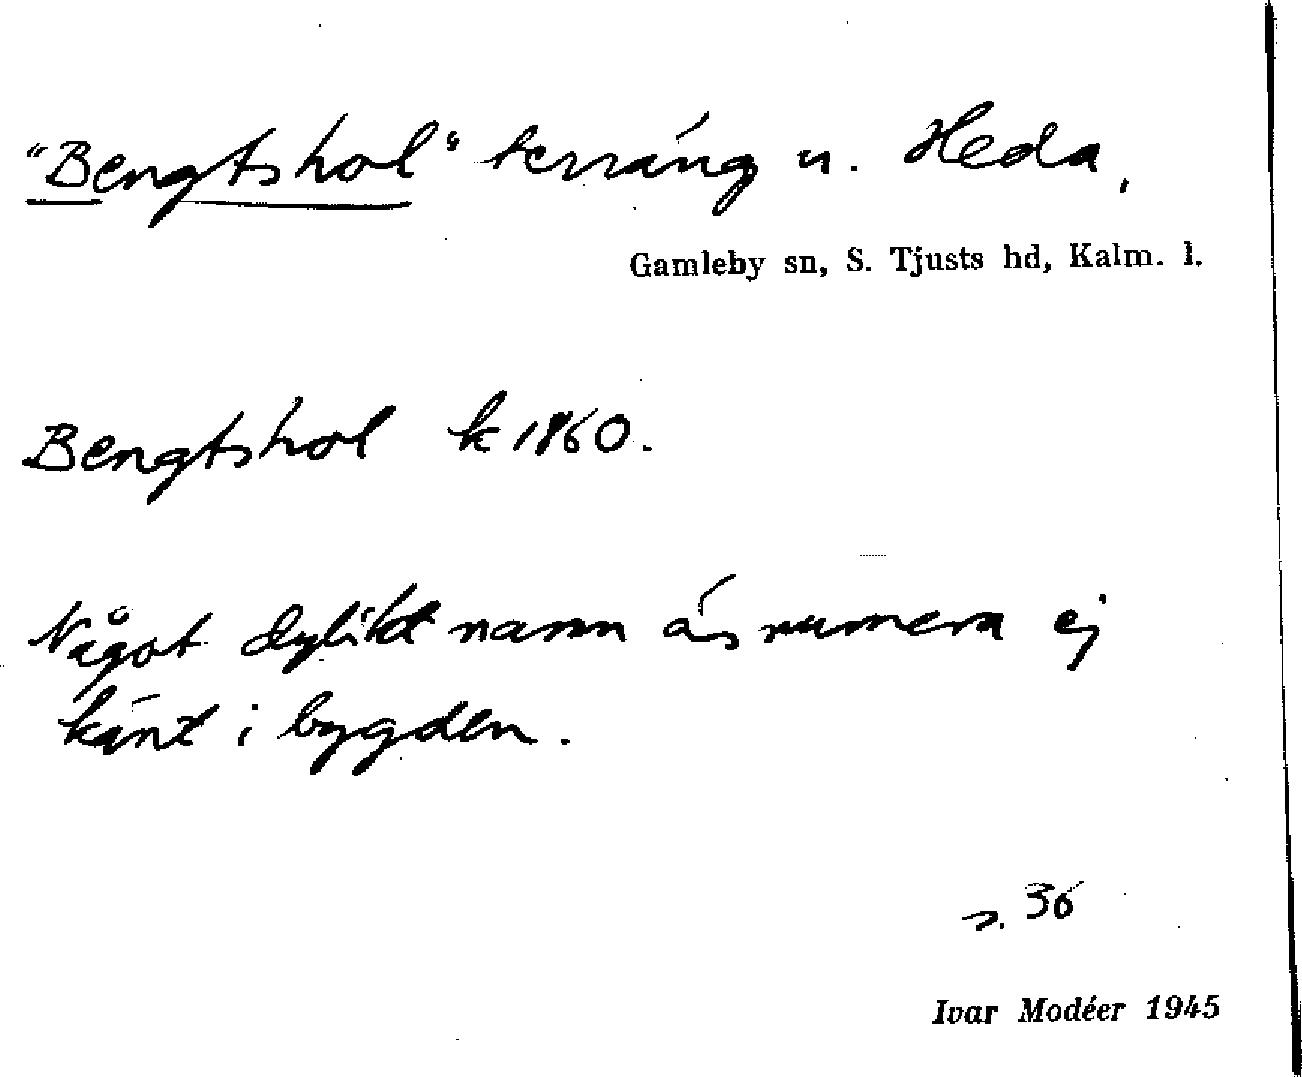 "Bengtshol" terräng u. Heda,
Gamleby sn, S. Tjusts hd, Kalm. l.
Bengtshol k 1860.
Något dylikt namn är numera ej
känt i bygden.
s. 36
Ivar Modéer 1945